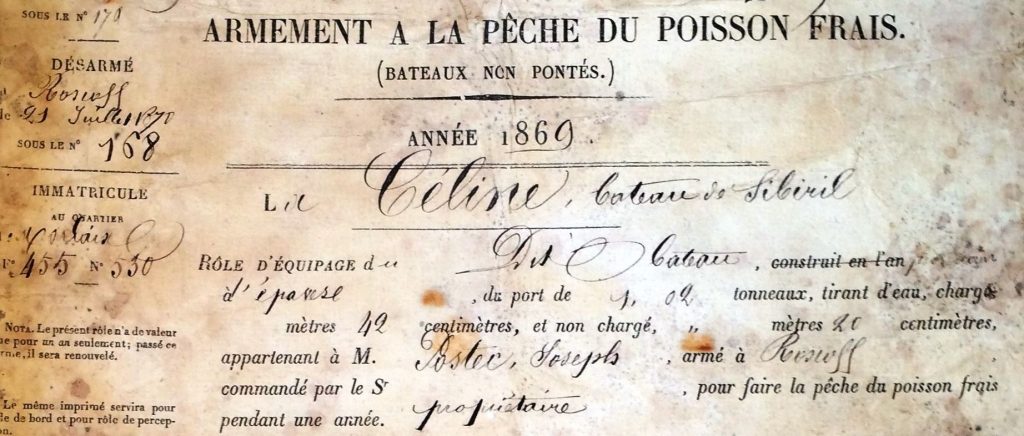 SOUS LE N° 170
DÉSARMÉ
Roscoff
le 21 Juillet 1870
SOUS LE N° 168
IMMATRICULE
AU QUARTIER
Morlaix
F° 455 N° 530
NOTA. Le présent rôle n'a de valeur
que pour un an seulement; passé ce
terme, il sera renouvelé.
Le même imprimé servira pour
rôle de bord et pour rôle de percep-
ARMEMENT A LA PÊCHE DU POISSON FRAIS.
(BATEAUX NON PONTÉS.)
ANNÉE 1869.
La Céline, bateau de Sibiril
RÔLE D'ÉQUIPAGE du Dit bateau, construit en l'an
d'épave, du port de 1,02 tonneaux, tirant d'eau, chargé
mètres 42 centimètres, et non chargé, " mètres 20 centimètres,
appartenant à M. Postec, Joseph, armé à Roscoff
commandé par le Sr , pour faire la pêche du poisson frais
pendant une année. propriétaire